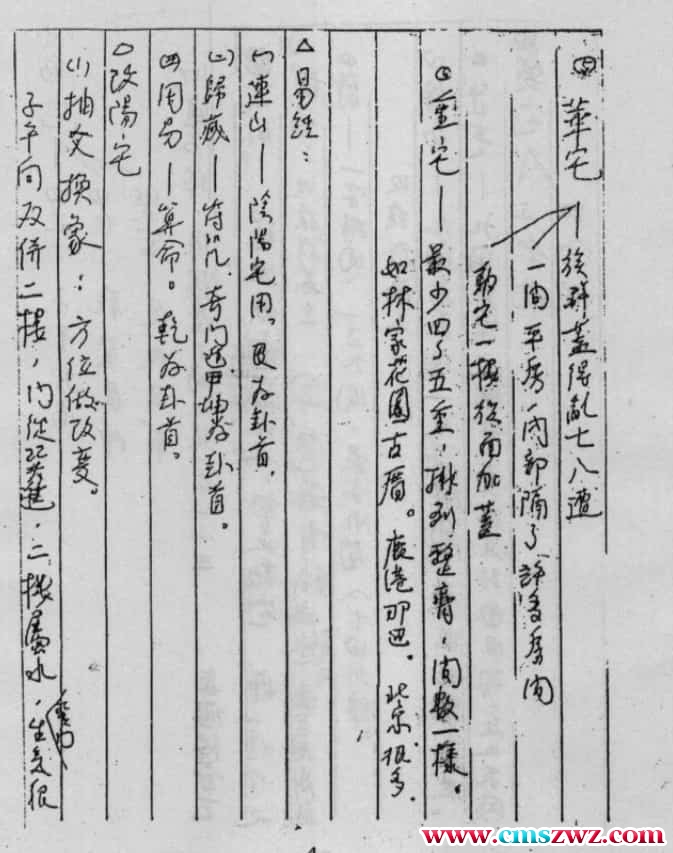 ㈣ 華宅—族群蓋得亂七八遭
一間平房,內部隔了許多房間
動宅一樓後面加蓋
重宅—最少四、五重,排列整齊,間數一樣。
如林家花園古厝。鹿港那邊。北京很多.
△易經:
㈠連山—陰陽宅用。艮為卦首.
㈡歸藏—符咒.奇門遁甲坤為卦首。
周易—算命。乾為卦首。
△改陽宅
⑴抽爻換象:方位做改變。
子午向双併二樓,門從 進,二樓屬水,生氣很
www.cmszwz.com